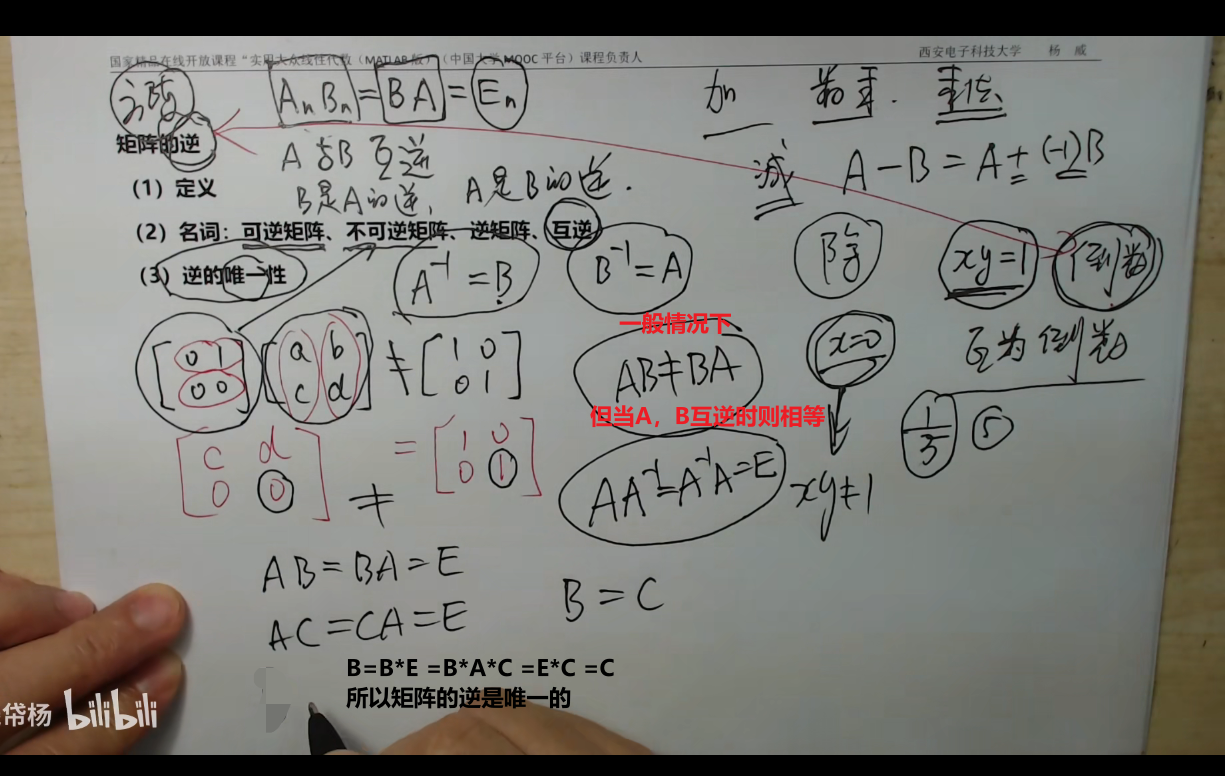 国家精品在线开放课程“实用大众线性代数（MATLAB 版）”（中国大学 MOOC 平台）课程负责人
西安电子科技大学 杨 威
方阵 AₙBₙ = BA = Eₙ
加 数乘. 乘法
矩阵的逆
A与B 互逆
减 A − B = A + (-1)B
（1）定义
B是A的逆, A是B的逆.
（2）名词：可逆矩阵、不可逆矩阵、逆矩阵、互逆
除 xy=1 倒数
（3）逆的唯一性
A⁻¹ = B B⁻¹ = A
一般情况下
x=0 互为倒数
[0 1
0 0] [a b
c d] ≠ [1 0
0 1]
AB≠BA
但当A，B互逆时则相等
1/5 5
[c d
0 0] = [1 0
0 1]
≠
AA⁻¹=A⁻¹A=E
xy≠1
AB=BA=E
AC=CA=E
B=C
B=B*E =B*A*C =E*C =C
所以矩阵的逆是唯一的
帒杨 bilibili